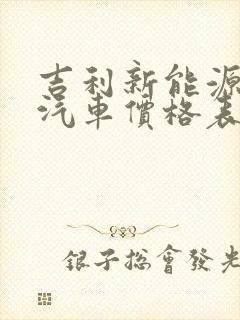 吉利新能源
汽車價格表
銀子總會發光